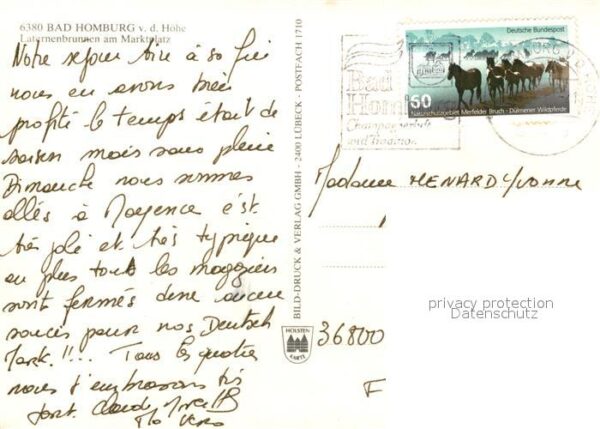 6380 BAD HOMBURG v. d. Höhe
Laternenbrunnen am Marktplatz
Notre séjour tire à sa fin
nous en avons bien
profité le temps était de
saison mais sans pluie
Dimanche nous sommes
allés à Mayence c'est
très joli et très typique
en plus tous les magasins
sont fermés donc aucun
soucis pour nos Deutsch
Mark!!... Tous les quatre
nous t'embrassons très
fort. Claude
BILD-DRUCK & VERLAG GMBH - 2400 LÜBECK - POSTFACH 1710
HOLSTEN
KARTE
Deutsche Bundespost
60
Naturschutzgebiet Merfelder Bruch - Dülmener Wildpferde
Bad
Homburg
Champagnerluft
und Tradition
Madame MENARD Yvonne
privacy protection
Datenschutz
36800
F